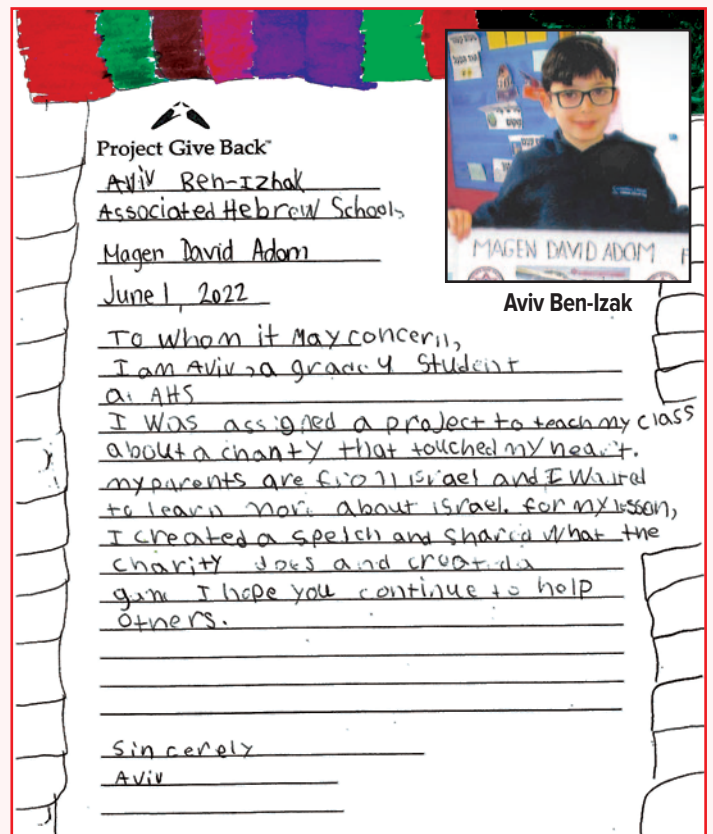 Project Give Back™
Aviv Ben-Izhak
Associated Hebrew Schools
Magen David Adom
June 1, 2022
MAGEN DAVID ADOM
Aviv Ben-Izak
To whom it May concern,
I am Aviv, a grade 4 Student
at AHS
I was assigned a project to teach my class
about a charity that touched my heart.
my parents are from israel and I wanted
to learn more about israel. for my lesson,
I created a speech and shared what the
charity does and created a
game I hope you continue to help
others.
Sincerely
Aviv